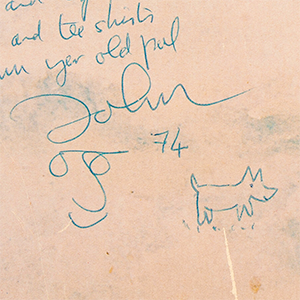 and
and tee shirts
yer old pal
John
74